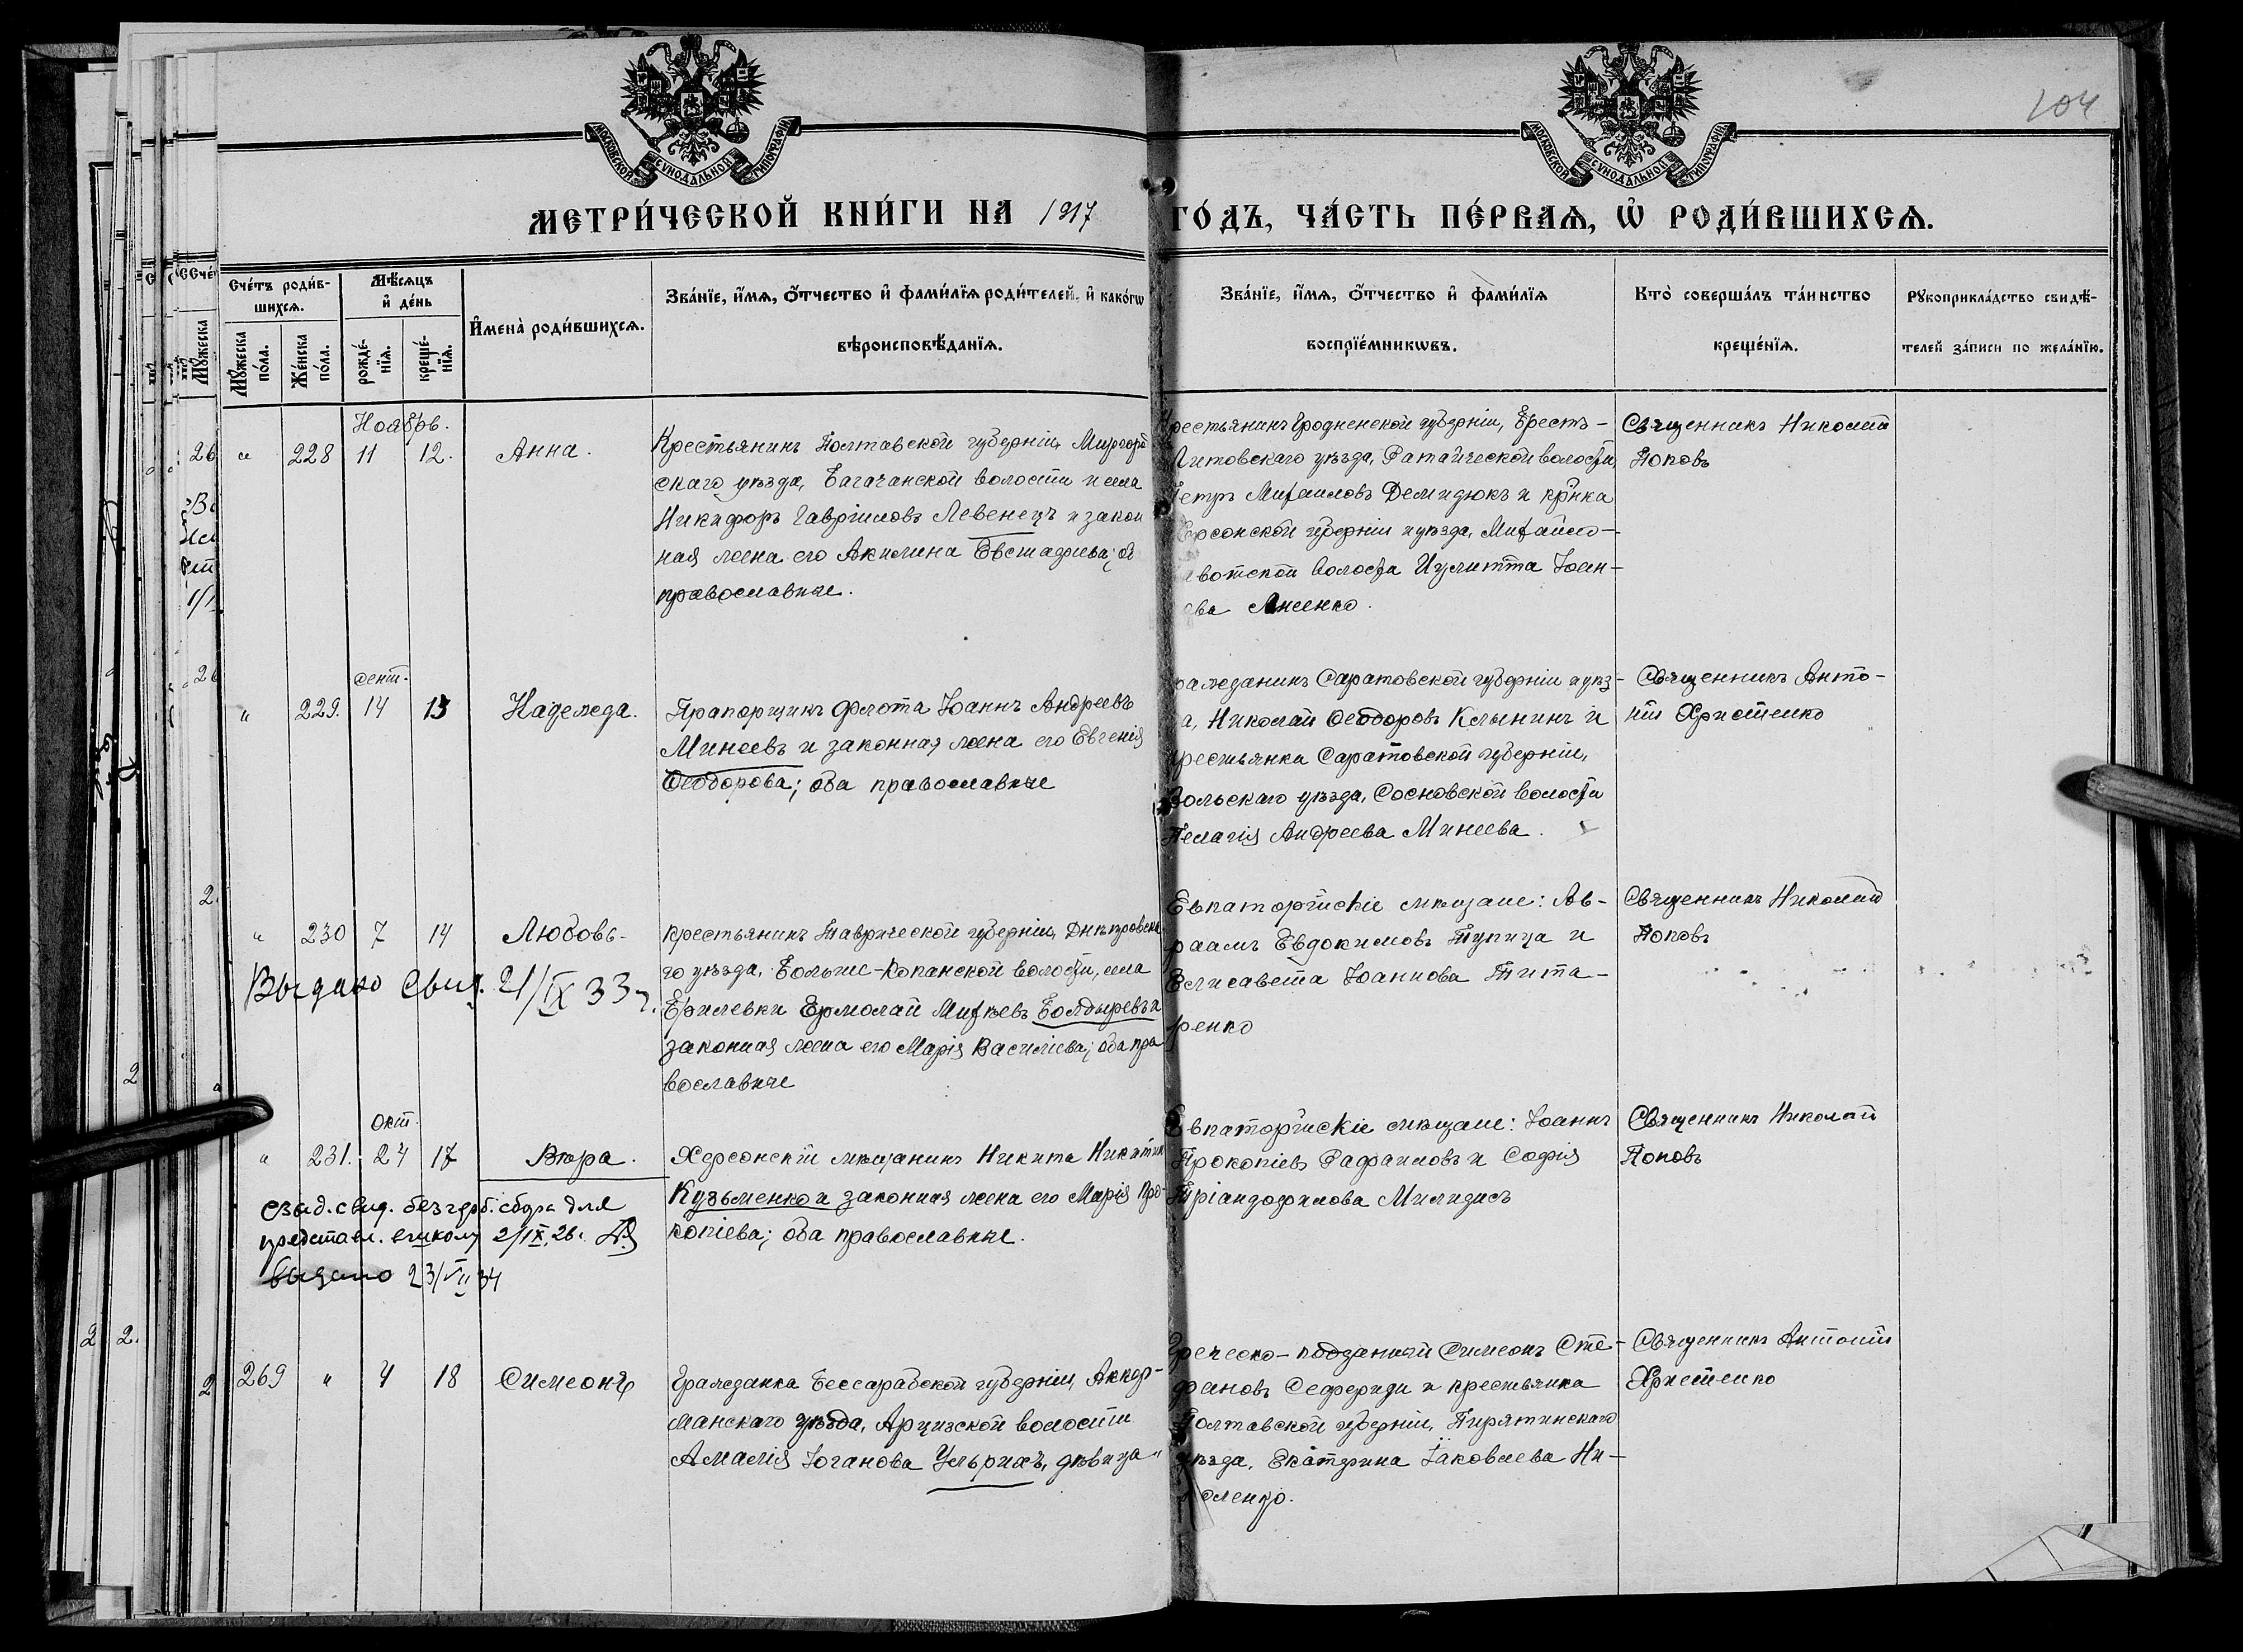 104
МОСКОВСКОЙ СѴНОДАЛЬНОЙ ТИПОГРАФІИ
МОСКОВСКОЙ СѴНОДАЛЬНОЙ ТИПОГРАФІИ
МЕТРИ́ЧЕСКОЙ КНИ́ГИ НА 1917 ГО́ДЪ, ЧА́СТЬ ПЕ́РВАѦ, Ѡ҆ РОДИ́ВШИХСѦ.
Сче́тъ роди́в-
шихсѧ.
Мꙋ́жеска по́ла.
Же́нска по́ла.
Мѣ́сѧцъ и҆ де́нь
рожде́-нїѧ.
креще́-нїѧ.
И҆мена̀ роди́вшихсѧ.
Зва́нїе, и҆́мѧ, ѻ҆́тчество и҆ фами́лїѧ роди́телей, и҆ како́гѡ
вѣроисповѣ́данїѧ.
Зва́нїе, и҆́мѧ, ѻ҆́тчество и҆ фами́лїѧ
воспрїе́мникѡвъ.
Кто̀ соверша́лъ та́инство
креще́нїѧ.
Рꙋкоприкла́дство свидѣ́-
телей за́писи по жела́нїю.
Ноябрь.
" 228 11 12. Анна.
Крестьянинъ Полтавской губерніи, Миргород
скаго уѣзда, Багачанской волости и села
Никифоръ Гавріиловъ Левенецъ и закон
ная жена его Акилина Евстафиева; об
православные.
Крестьянинъ Гродненской губерніи, Брестъ-
Литовскаго уѣзда, Ратайческой волости,
Петръ Михаиловъ Демидюкъ и кр-нка
Херсонской губерніи и уѣзда, Михайло-
волости Иулитта Іоан-
ова Лысенко.
Священникъ Николай
Поповъ
сент.
" 229. 14 13 Надежда.
Прапорщикъ флота Іоаннъ Андреевъ
Минеевъ и законная жена его Евгенія
Ѳеодорова; оба православные
гражданинъ Саратовской губерніи и уѣз-
да, Николай Ѳеодоровъ Клынинъ и
крестьянка Саратовской губерніи,
Вольскаго уѣзда, Сосновской волости
Пелагія Андреева Минеева.
Священникъ Анто-
ній Христенко
" 230 7 14 Любовь.
крестьянинъ Таврической губерніи, Днѣпровска
го уѣзда, Больше-Копанской волости, села
Ермолай Михѣевъ Болдыревъ и
законная жена его Марія Василіева; оба пра
вославные
Евпаторійскіе мѣщане: Ав-
раамъ Евдокимовъ Тупица и
Елисавета Іоаннова Тита-
ренко
Священникъ Николай
Поповъ
Выдано свид. 21/IX 33 г.
окт.
" 231. 24 17 Вѣра.
Херсонскій мѣщанинъ Никита Никитин
Кузьменко и законная жена его Марія Про-
копіева; оба православные.
Евпаторійскіе мѣщане: Іоаннъ
Прокопіевъ Рафаиловъ и Софія
Тріандофилова Милидисъ
Священникъ Николай
Поповъ
свид. без герб. сбора для
представл. в школу 2/IX, 26.
выдано 23/VII 34
269 " 4 18 Симеонъ
Гражданка Бессарабской губерніи, Аккер-
манскаго уѣзда, Арцизской волости
Амалія Іоганова Ульрихъ, дѣвица"
Греческо-подданный Симеонъ Сте-
фановъ Сефериди и крестьянка
Полтавской губерніи, Пирятинскаго
уѣзда, Екатерина Іаковлева Ни-
Священникъ Антоній
Христенко